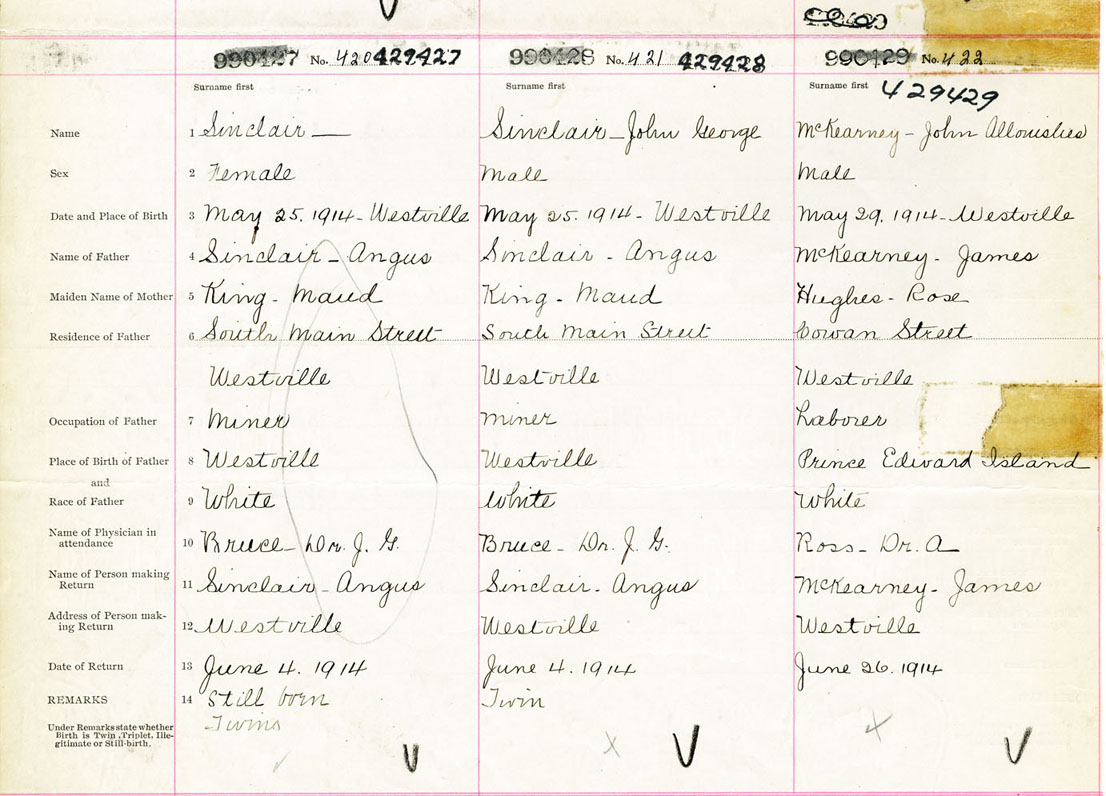 990427 No. 420 429427 990428 No. 421 429428 990429 No. 422
Surname first Surname first Surname first 429429
Name 1 Sinclair — Sinclair - John George McKearney - John
Sex 2 Female Male Male
Date and Place of Birth 3 May 25. 1914 - Westville May 25. 1914 - Westville May 29. 1914 - Westville
Name of Father 4 Sinclair - Angus Sinclair - Angus McKearney - James
Maiden Name of Mother 5 King - Maud King - Maud Hughes - Rose
Residence of Father 6 South Main Street South Main Street Cowan Street
Westville Westville Westville
Occupation of Father 7 Miner Miner Laborer
Place of Birth of Father 8 Westville Westville Prince Edward Island
and
Race of Father 9 White White White
Name of Physician in
attendance 10 Bruce - Dr. J. G. Bruce - Dr. J. G. Ross - Dr. A
Name of Person making
Return 11 Sinclair - Angus Sinclair - Angus McKearney - James
Address of Person mak-
ing Return 12 Westville Westville Westville
Date of Return 13 June 4. 1914 June 4. 1914 June 26. 1914
REMARKS 14 Still born Twin
Twins
Under Remarks state whether
Birth is Twin, Triplet, Ille-
gitimate or Still-birth.